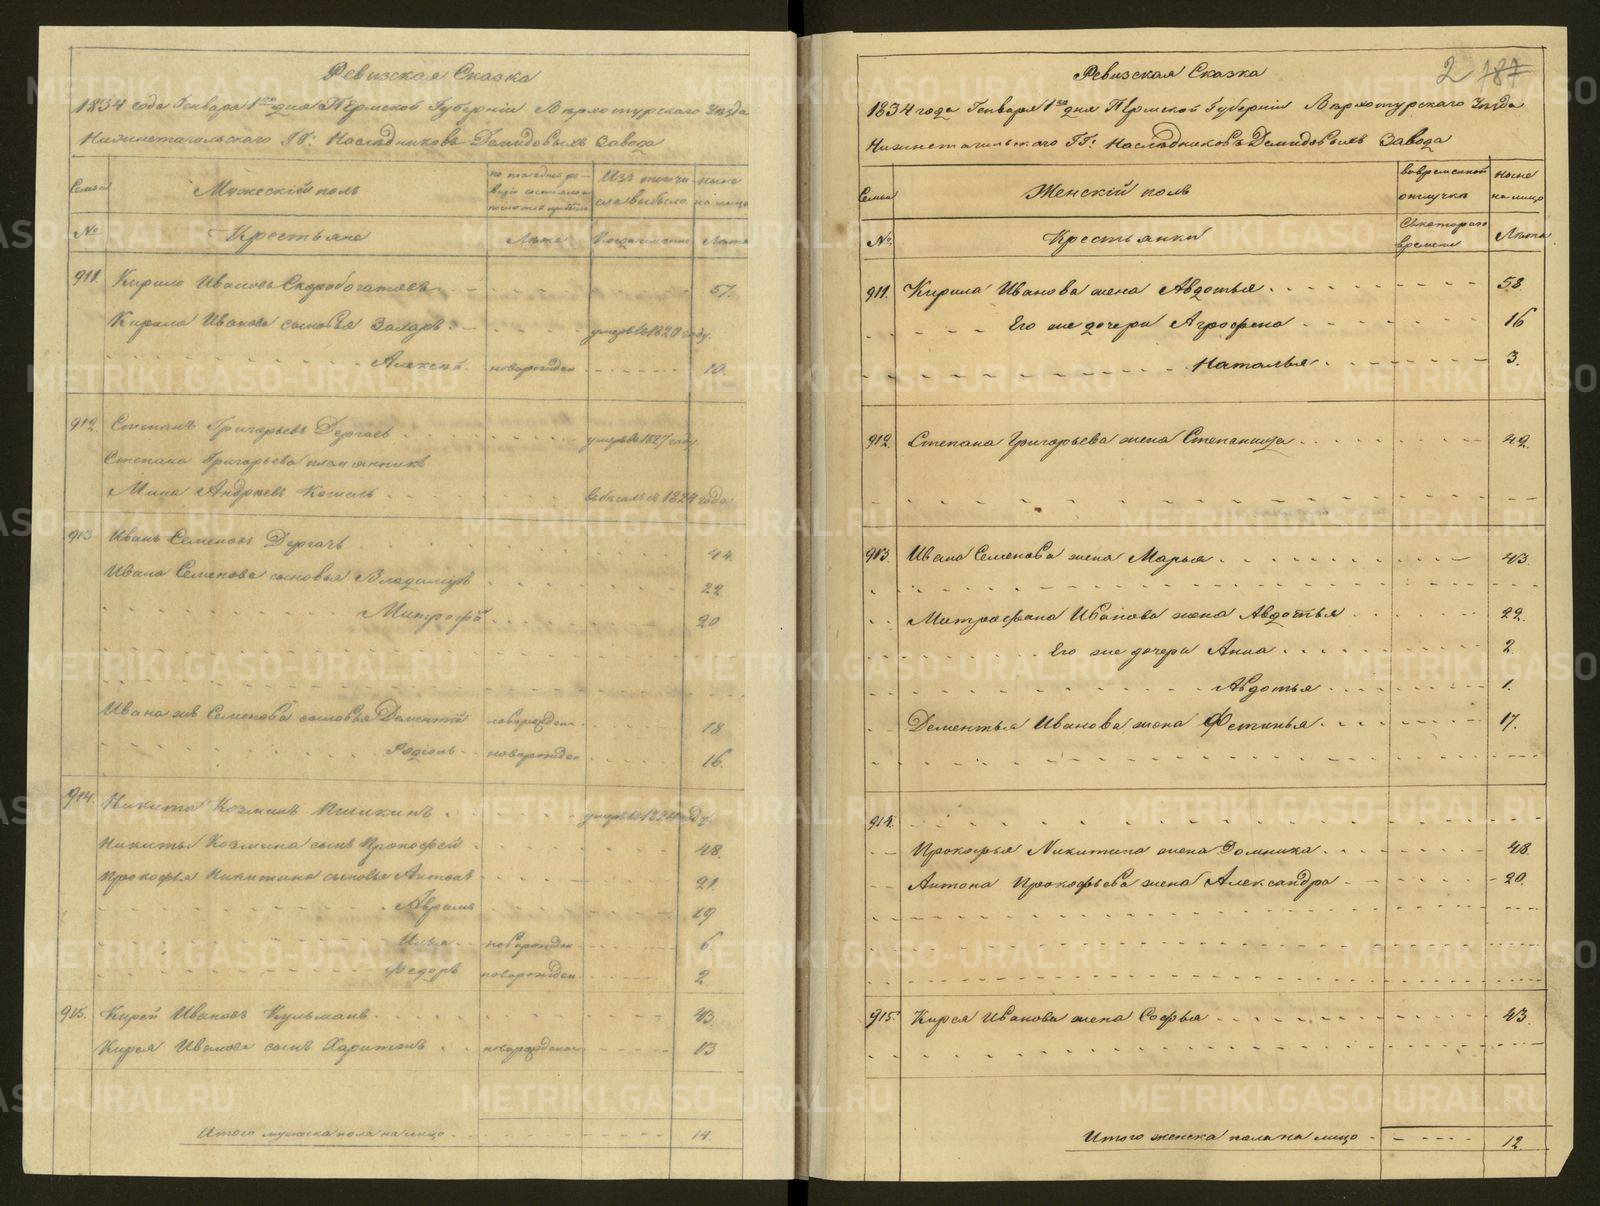 Ревизская Сказка
1834 года Генваря 1го дня Пермской Губернии Верхотурского Уезда
Нижнетагильского ГГ: Наследниковъ Демидовыхъ Завода
Семьи
Мужескій полъ
по последней ре-
визіи состояло и
после того прибыло
Изъ того чи-
сла выбыло
ныне
на лицо
№
Крестьяне
Лета
Когда именно
Лета
911. Кирило Ивановъ Скоробогатовъ 57.
Кирила Иванова сыновья Захаръ умеръ в 1820 году.
Алексей новорожден 10.
912. Степанъ Григорьевъ Дергачъ умеръ в 1827 году
Степана Григорьева племянникъ
Мина Андреевъ в 1824 года
913 Иванъ Семеновъ Дергачъ 44.
Ивана Семенова сыновья Владимиръ 22
Митрофа 20
Ивана жъ Семенова сыновья Дементій новорожден 18
Родіонъ новорожден 16.
914. Никита Козминъ умеръ в
Никиты Козмина сынъ Прокофей 48.
Прокофья Никитина сыновья Антонъ 21.
Абрамъ 19
Илья новорожден 6
Федоръ новорожден 2
915. Кирей Ивановъ 43
Кирея Иванова сынъ Харитонъ новорожден 13
Итого мужеска пола на лицо 14.
2 187
Ревизская Сказка
1834 года Генваря 1го дня Пермской Губерніи Верхотурского Уезда
Нижнетагильского ГГ: Наследниковъ Демидовыхъ Завода
Семьи
Женскій полъ
во временной
отлучке
ныне
на лицо
№
Крестьянки
Съ котораго
времени
Лета
911. Кирила Иванова жена Авдотья 58.
Его же дочери Агрофена 16
Наталья 3.
912. Степана Григорьева жена Степанида 42.
913. Ивана Семенова жена Марья 43.
Митрофана Иванова жена Авдотья 22.
Его же дочери Анна 2.
Авдотья 1.
Дементья Иванова жена Фетинья 17.
914.
Прокофья Никитина жена Домника 48.
Антона Прокофьева жена Александра 20.
915. Кирея Иванова жена Софья 43.
Итого женска пола на лицо 12.